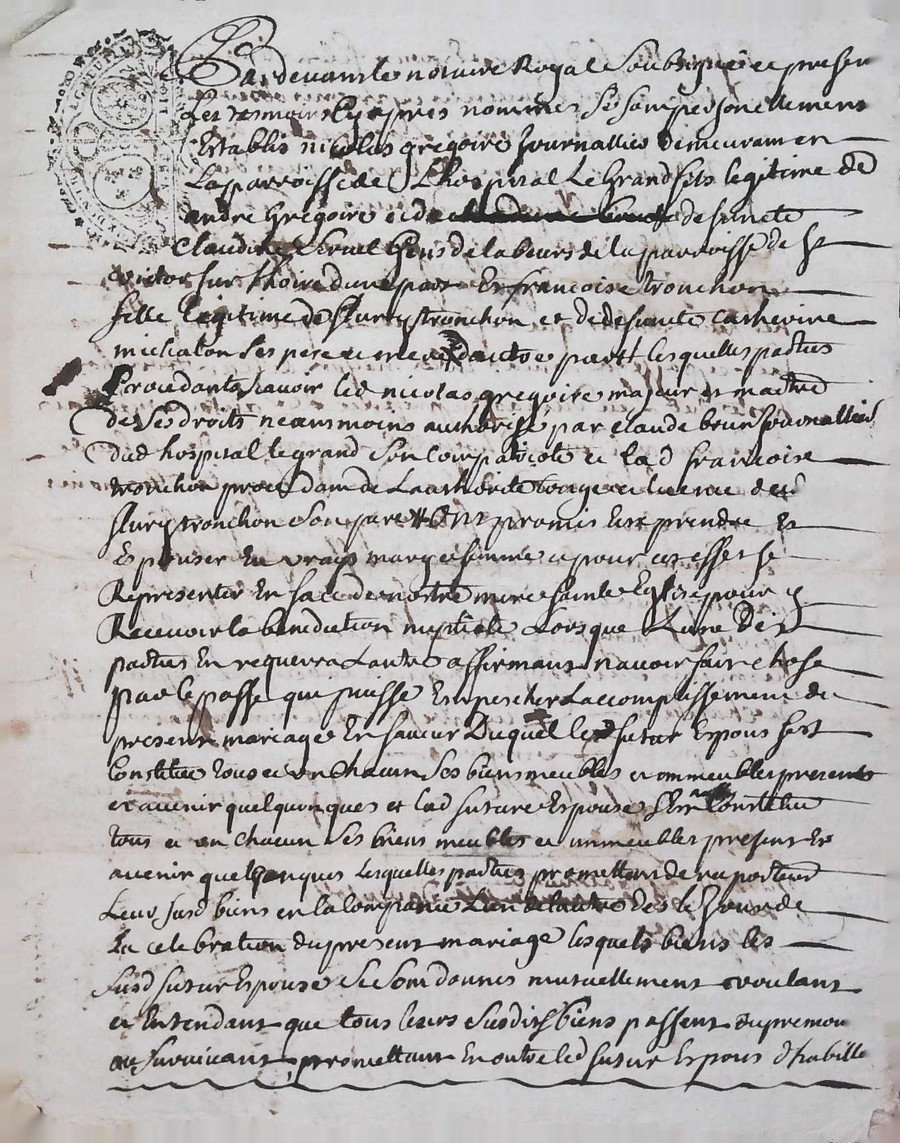 Pardevant le notaire Royal Soubsigné et presen
Les tesmoins cy apres nommes se sont personellement
Establis nicolas gregoire Journallier demeurant en
La parroisse de L'hospital Le Grand fils legitime de
andre Gregoire et de defuncte
Claudine gens de labeurs de la parroisse de St
victor sur thoire dune part Et francoise tronchon
fille legitime de fleury tronchon et de defuncte catherine
michalon ses pere et mere dautre part lesquelles parties
procedants scavoir led nicolas gregoire majeur et maitre
de ses droits neansmoins authorisé par claude brun Journallier
dud hospital le grand son compatriote et lad francoise
tronchon procedant de Lauthorité conge et licence dud
fleury tronchon son pere ont promis Est prendre Et
Espouser En vrays mary et femme et pour cet effet se
Representer En face de nostre mere sainte Eglise pour y
Recevoir la benediction nuptiale Lorsque Lune des
parties En requerra Lautre affirmant navoir fait chose
par le passe qui puisse Empescher Laccomplissement du
present mariage En faveur Duquel led futur Espoux sest
Constitue tous et un chacun ses biens meubles et immeubles presents
et avenir quelquonques et lad future Espouse sest aussy Constitue
tous et un chacun ses biens meubles et immeubles present Et
avenir quelquonques Lesquelles parties promettent de raporter
Leur susd biens en la Compagnie Lun de lautre Des le Jour de
La celebration du present mariage lesquels biens les
susd futur Espoux se sont donnes mutuellement voulant
et Entendant que tous leurs susdits biens passent du premou
au survivant promettant En outre led futur Espoux dhabille